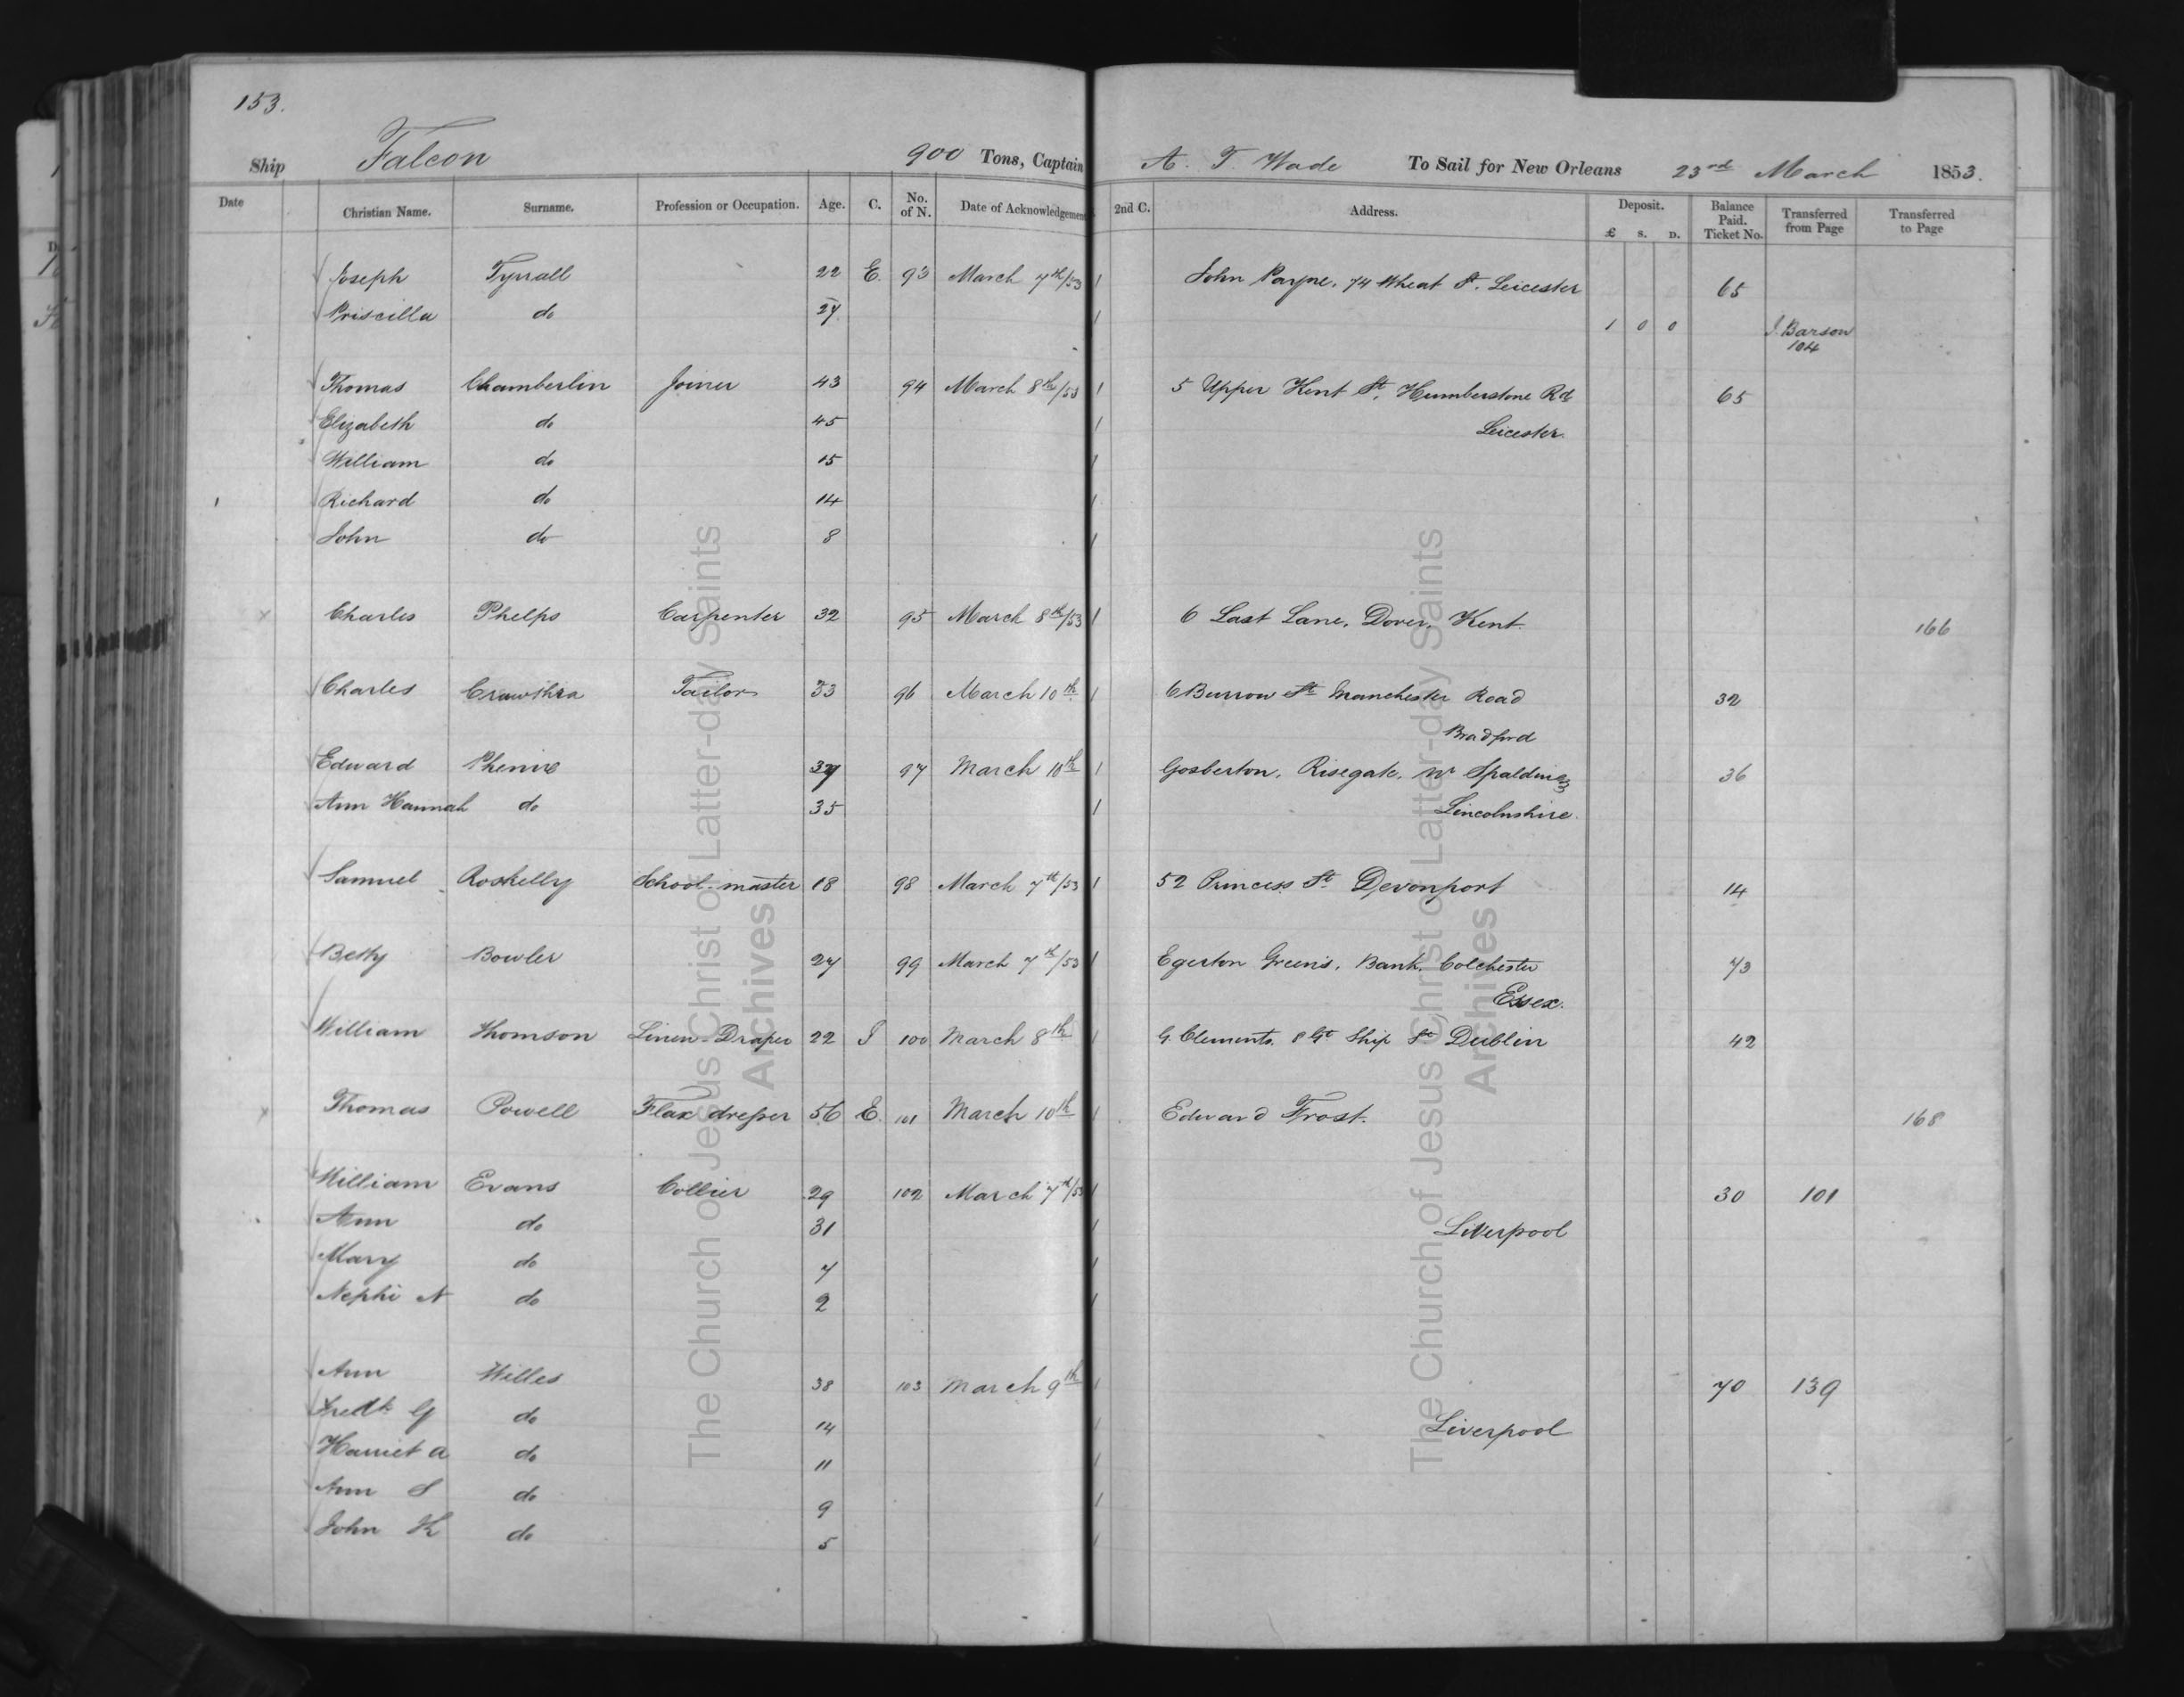 153.
Ship Falcon 900 Tons, Captain A. T. Wade To Sail for New Orleans 23rd March 1853.
Date Christian Name. Surname. Profession or Occupation. Age. C. No. of N. Date of Acknowledgemen 2nd C. Address. Deposit. £ S. D. Balance Paid. Ticket No. Transferred from Page Transferred to Page
Joseph Tyrrall 22 E. 93 March 7th/53 1 John Payne, 74 Wheat St. Leicester 65
Priscilla do 27 1 1 0 0 J. Barson
104
Thomas Chamberlin Joiner 43 94 March 8th/53 1 5 Upper Kent St, Humberstone Rd 65
Elizabeth do 45 1 Leicester.
William do 15 1
Richard do 14 1
John do 8 1
x Charles Phelps Carpenter 32 95 March 8th/53 1 6 Last Lane, Dover, Kent. 166
Charles Crawthra Tailor 33 96 March 10th 1 6 Burrow St Manchester Road 32
Bradford
Edward Phenix 37 97 March 10th 1 Gosberton, Risegate, Nr Spalding 36
Ann Hannah do 35 1 Lincolnshire.
Samuel Roskelly School-master 18 98 March 7th/53 1 52 Princess St Devonport 14
Betsy Bowler 27 99 March 7th/53 1 Egerton Green's, Bank, Colchester 73
Essex.
William Thomson Linen-Draper 22 I 100 March 8th 1 G. Clements, 8 Gt Ship St Dublin 42
x Thomas Powell Flax dresser 56 E. 101 March 10th 1 Edward Frost. 168
William Evans Collier 29 102 March 7th/53 1 30 101
Ann do 31 1 Liverpool
Mary do 7 1
Nephi N do 2 1
Ann Willes 38 103 March 9th 1 70 139
Fredk G do 14 1 Liverpool
Harriet A do 11 1
Ann S do 9 1
John K do 5 1
The Church of Jesus Christ of Latter-day Saints
Archives
The Church of Jesus Christ of Latter-day Saints
Archives